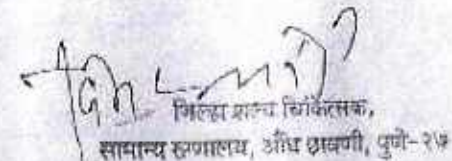 जिल्हा शल्य चिकित्सक,
सामान्य रुग्णालय, औंध छावणी, पुणे-२७